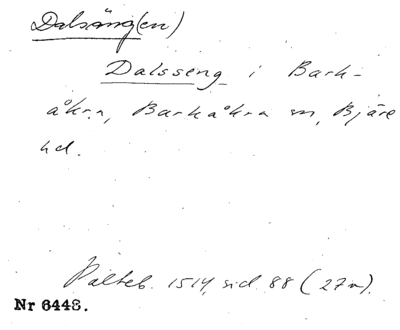 Dalsäng(en)
Dalsseng i Bark-
åkra, Barkåkra sn, Bjäre
hd.
Palteb. 1514, sid. 88 (27n).
Nr 6448.